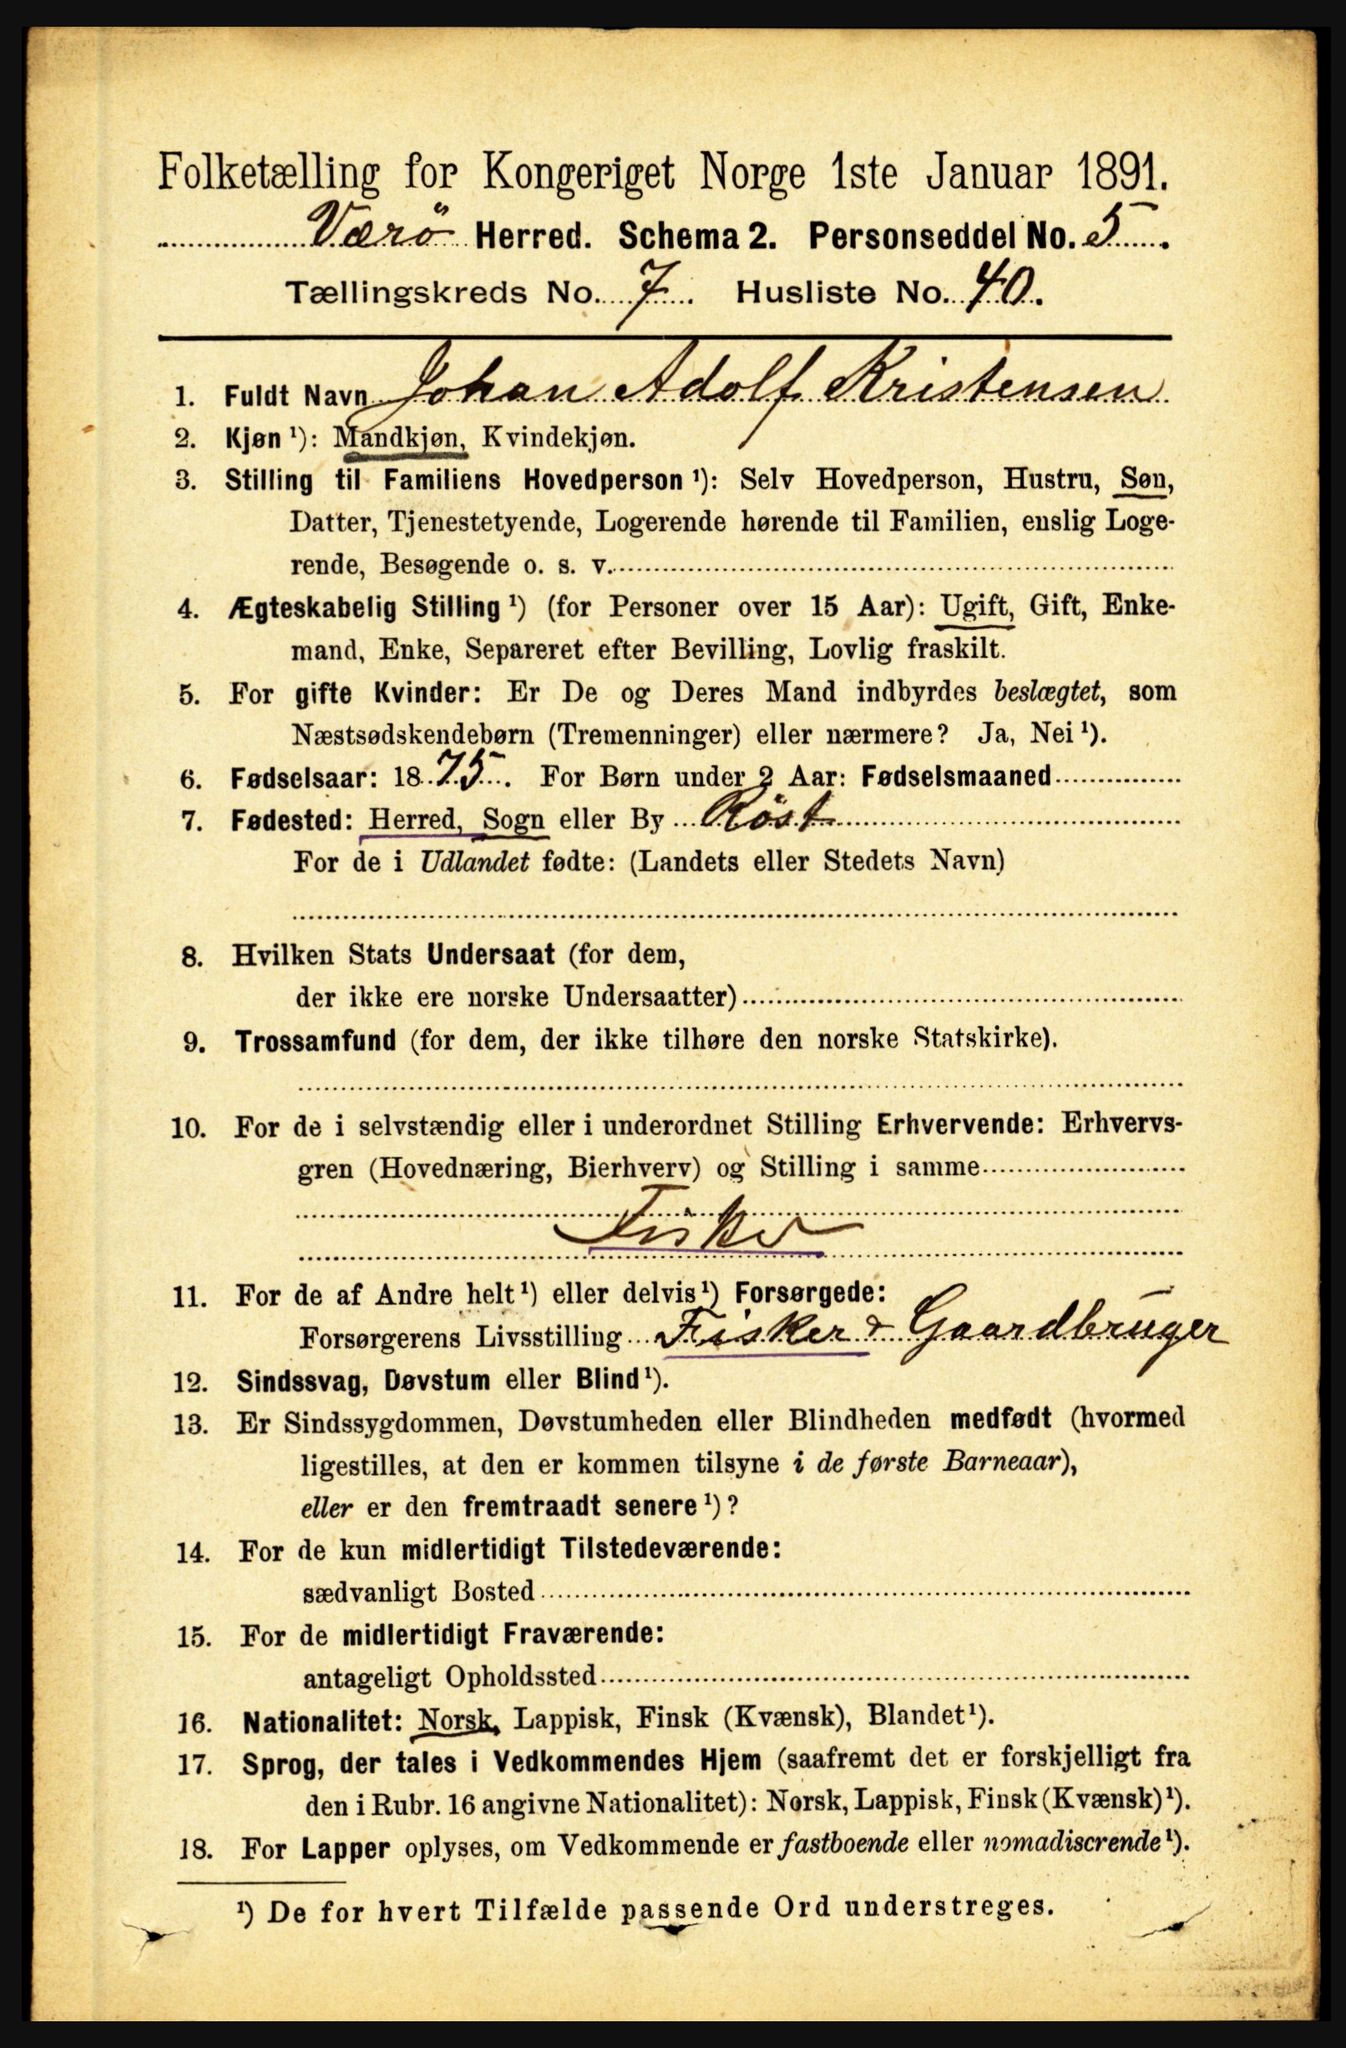 Folketælling for Kongeriget Norge 1ste Januar 1891.
Værö Herred. Schema 2. Personseddel No. 5.
Tællingskreds No. 7. Husliste No. 40.
1. Fuldt Navn Johan Adolf Kristensen
2. Kjøn ¹): Mandkjøn, Kvindekjøn.
3. Stilling til Familiens Hovedperson ¹): Selv Hovedperson, Hustru, Søn,
Datter, Tjenestetyende, Logerende hørende til Familien, enslig Loge-
rende, Besøgende o. s. v.
4. Ægteskabelig Stilling ¹) (for Personer over 15 Aar): Ugift, Gift, Enke-
mand, Enke, Separeret efter Bevilling, Lovlig fraskilt.
5. For gifte Kvinder: Er De og Deres Mand indbyrdes beslægtet, som
Næstsødskendebørn (Tremenninger) eller nærmere? Ja, Nei ¹).
6. Fødselsaar: 1875. For Børn under 2 Aar: Fødselsmaaned
7. Fødested: Herred, Sogn eller By Röst
For de i Udlandet fødte: (Landets eller Stedets Navn)
8. Hvilken Stats Undersaat (for dem,
der ikke ere norske Undersaatter)
9. Trossamfund (for dem, der ikke tilhøre den norske Statskirke).
10. For de i selvstændig eller i underordnet Stilling Erhvervende: Erhvervs-
gren (Hovednæring, Bierhverv) og Stilling i samme
Fisker
11. For de af Andre helt ¹) eller delvis ¹) Forsørgede:
Forsørgerens Livsstilling Fisker & Gaardbruger
12. Sindssvag, Døvstum eller Blind ¹).
13. Er Sindssygdommen, Døvstumheden eller Blindheden medfødt (hvormed
ligestilles, at den er kommen tilsyne i de første Barneaar),
eller er den fremtraadt senere ¹)?
14. For de kun midlertidigt Tilstedeværende:
sædvanligt Bosted
15. For de midlertidigt Fraværende:
antageligt Opholdssted
16. Nationalitet: Norsk, Lappisk, Finsk (Kvænsk), Blandet ¹).
17. Sprog, der tales i Vedkommendes Hjem (saafremt det er forskjelligt fra
den i Rubr. 16 angivne Nationalitet): Norsk, Lappisk, Finsk (Kvænsk) ¹).
18. For Lapper oplyses, om Vedkommende er fastboende eller nomadiserende ¹).
¹) De for hvert Tilfælde passende Ord understreges.